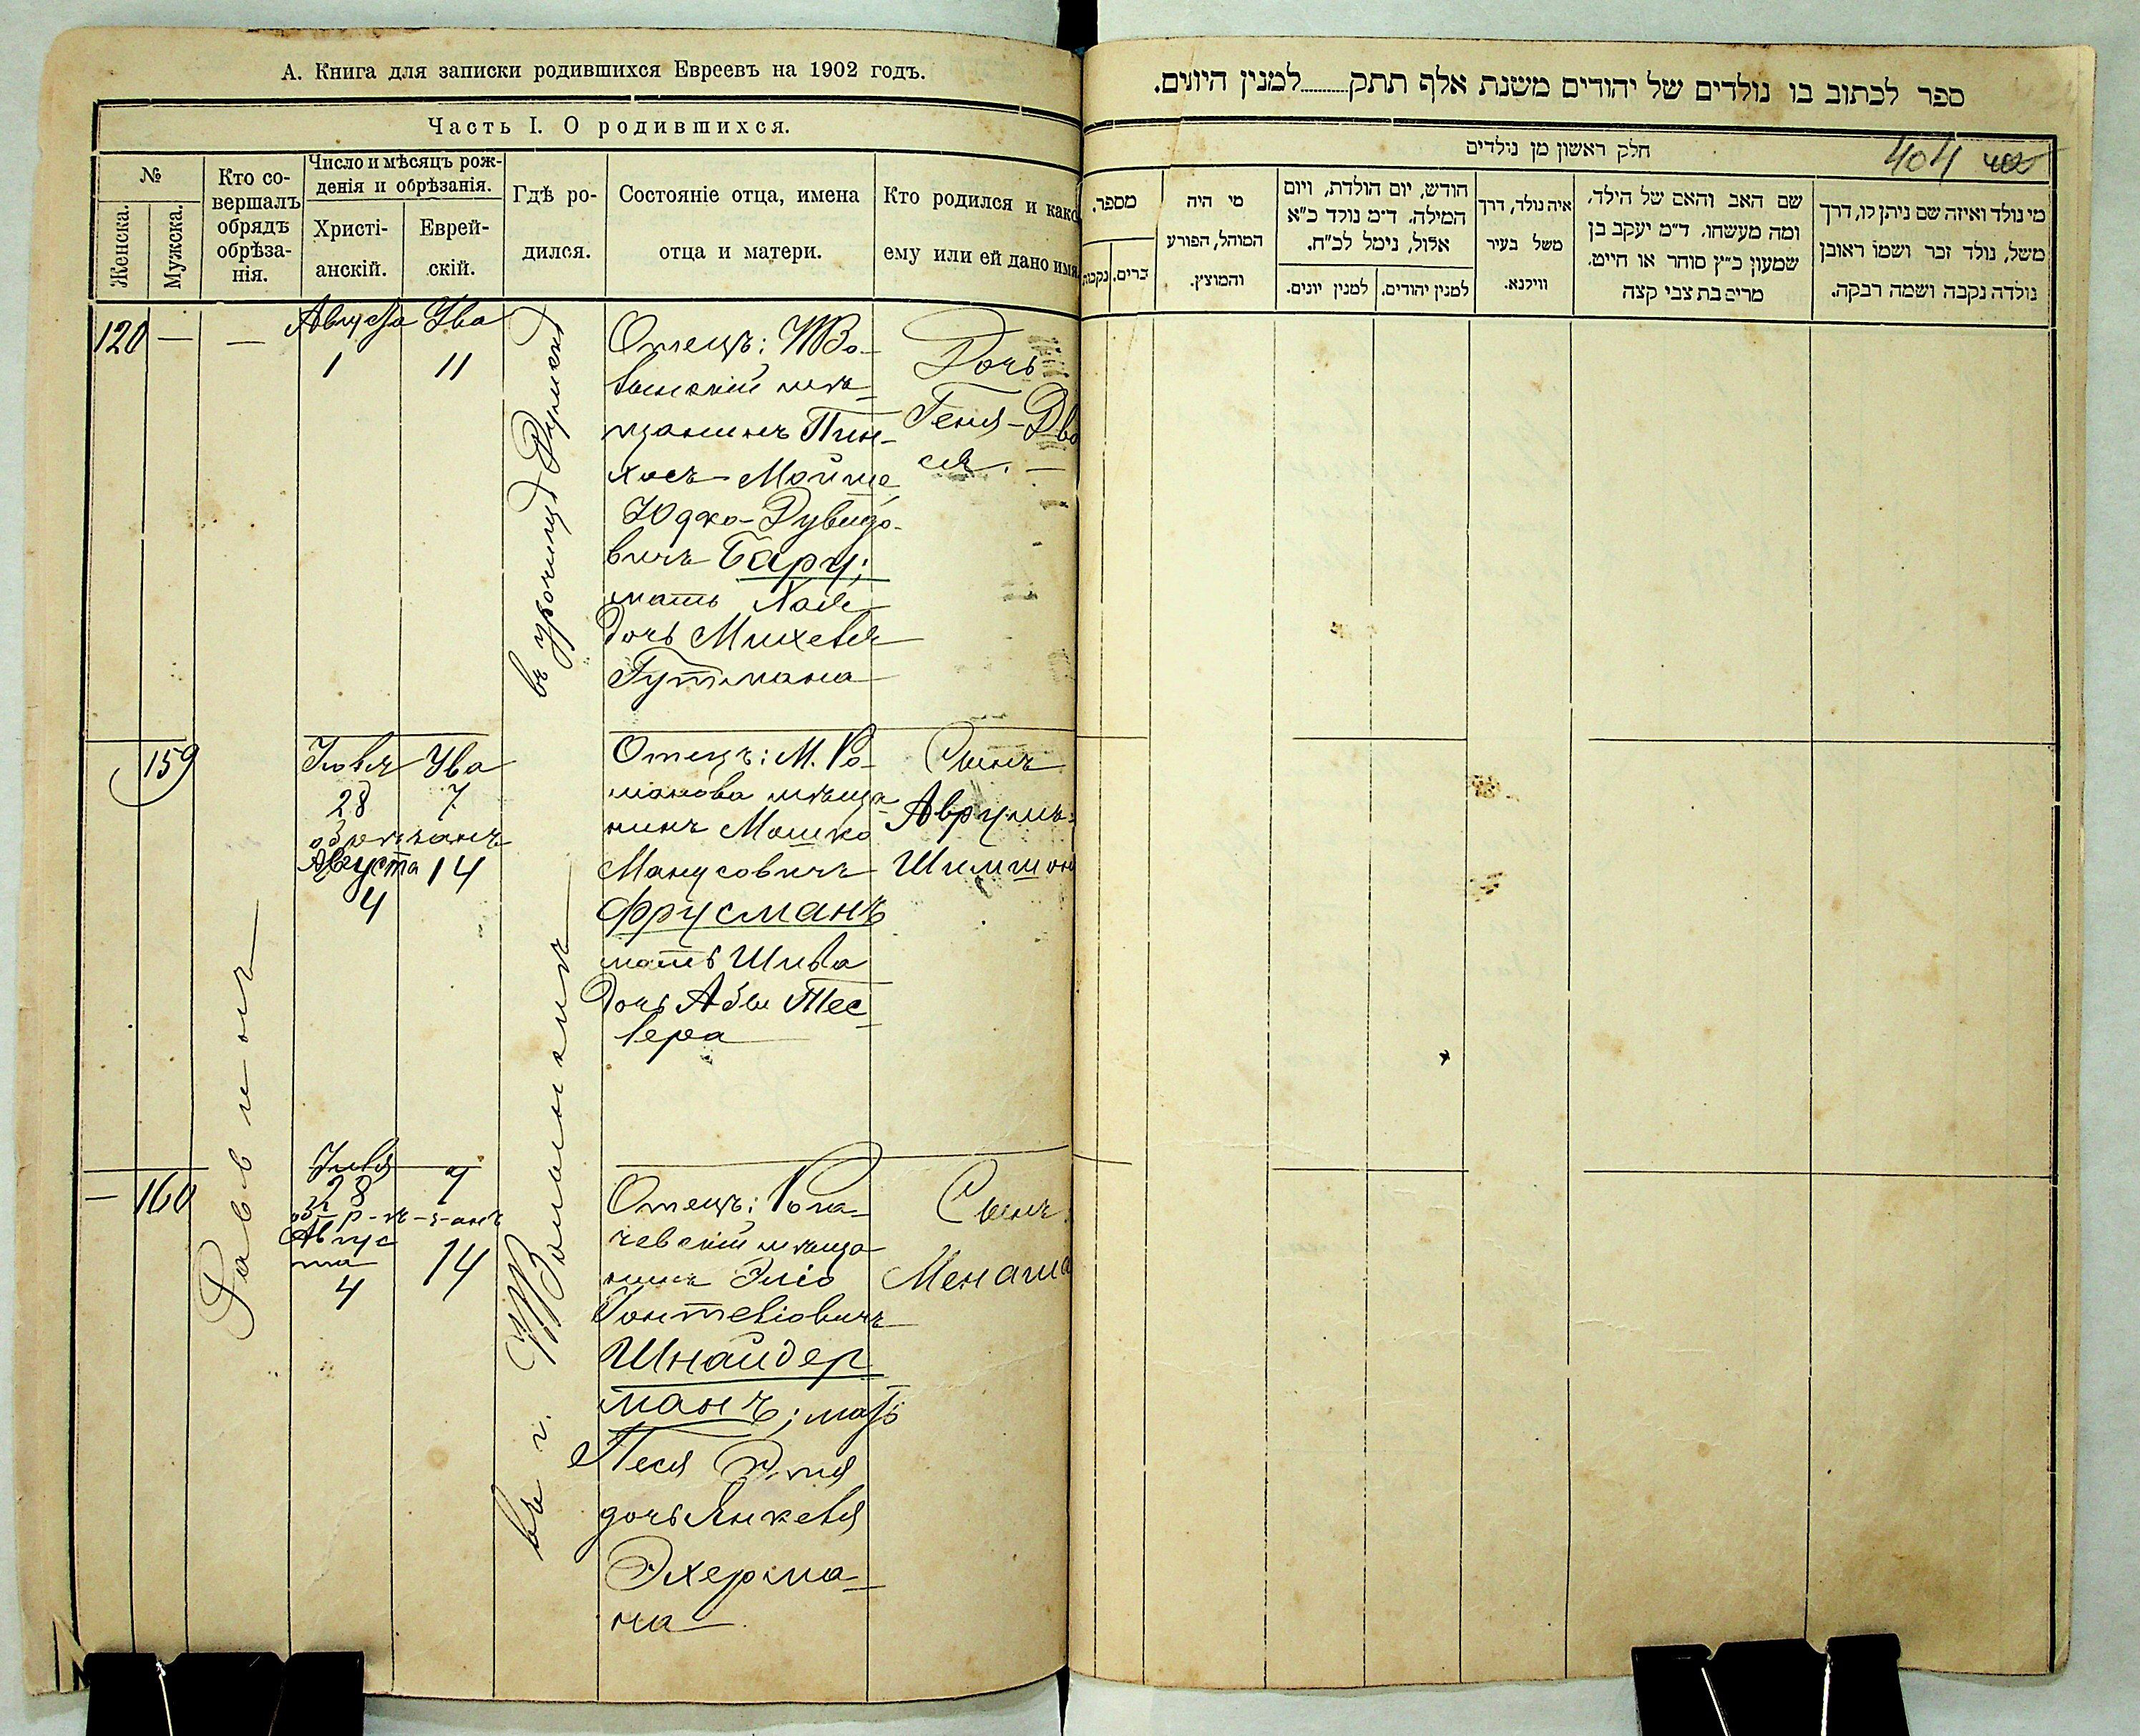 А. Книга для записки родившихся Евреевъ на 1902 годъ.
Часть I. О родившихся.
№
Женска.
Мужска.
Кто со-
вершалъ
обрядъ
обрѣза-
нія.
Число и мѣсяцъ рож-
денія и обрѣзанія.
Христі-
анскій.
Еврей-
скій.
Гдѣ ро-
дился.
Состояніе отца, имена
отца и матери.
Кто родился и како
ему или ей дано имя
120 — —
Августа
1
Ува
11
въ урочищѣ
Отецъ:
мѣ-
щанинъ Пин-
хосъ-Мойше
Юдко-Дувидо-
вичъ Бару;
мать Хая
дочь Михеля
Гутмана
Дочь
Геня-Дво
ся. —
159
Раввинъ
Іюля
28
обрѣзанъ
Августа
4
Ува
7
14
въ г.
Отецъ: М. Ро-
манова мѣща-
нинъ Мошко
Манусовичъ
Фрусманъ
мать Шива
дочь Абы Тес-
лера
Сынъ
Аврумъ-
Шимшон
— 160
Іюля
28
обр-ѣ-з-анъ
Авгус
та
4
7
14
Отецъ:
чевскій мѣща-
нинъ Эліо
Шнайдер
манъ; мать
Песя
дочь Янкеля
Эхерма-
на
Сынъ
Менаша
ספר לכתוב בו נולדים של יהודים משנת אלף תתק למנין היונים.
404
חלק ראשון מן נולדים
מספר.
זכרים.
נקבות
מי היה
המוהל, הפורע
והמוצץ.
חודש, יום הולדת, ויום
המילה. ד״מ נולד כ״א
אלול, נימל לכ״ח.
למנין יונים.
למנין יהודים.
איה נולד, דרך
משל בעיר
ווילנא.
שם האב והאם של הילד,
ומה מעשהו. ד״מ יעקב בן
שמעון כ״ץ סוחר או חייט.
מרים בת צבי קצה
מי נולד ואיזה שם ניתן לו, דרך
משל, נולד זכר ושמו ראובן
נולדה נקבה ושמה רבקה.